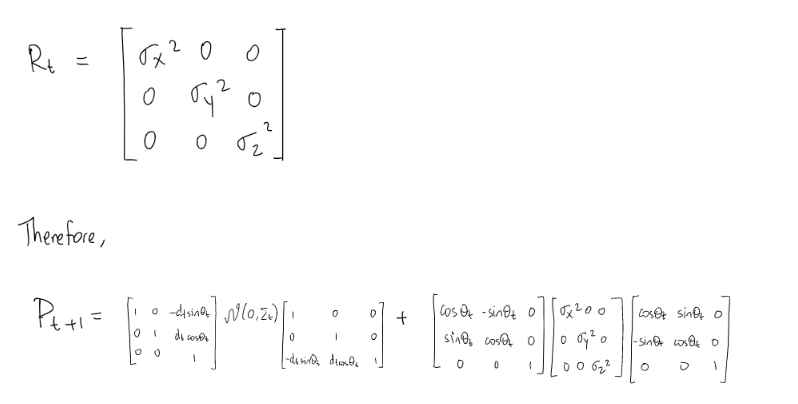 R_t = [ σ_x² 0 0
0 σ_y² 0
0 0 σ_z² ]
Therefore,
P_{t+1} = [ 1 0 -d_t sinθ_t ; 0 1 d_t cosθ_t ; 0 0 1 ] 𝒩(0,Σ_t) [ 1 0 0 ; 0 1 0 ; -d_t sinθ_t d_t cosθ_t 1 ] + [ cosθ_t -sinθ_t 0 ; sinθ_t cosθ_t 0 ; 0 0 1 ] [ σ_x² 0 0 ; 0 σ_y² 0 ; 0 0 σ_z² ] [ cosθ_t sinθ_t 0 ; -sinθ_t cosθ_t 0 ; 0 0 1 ]